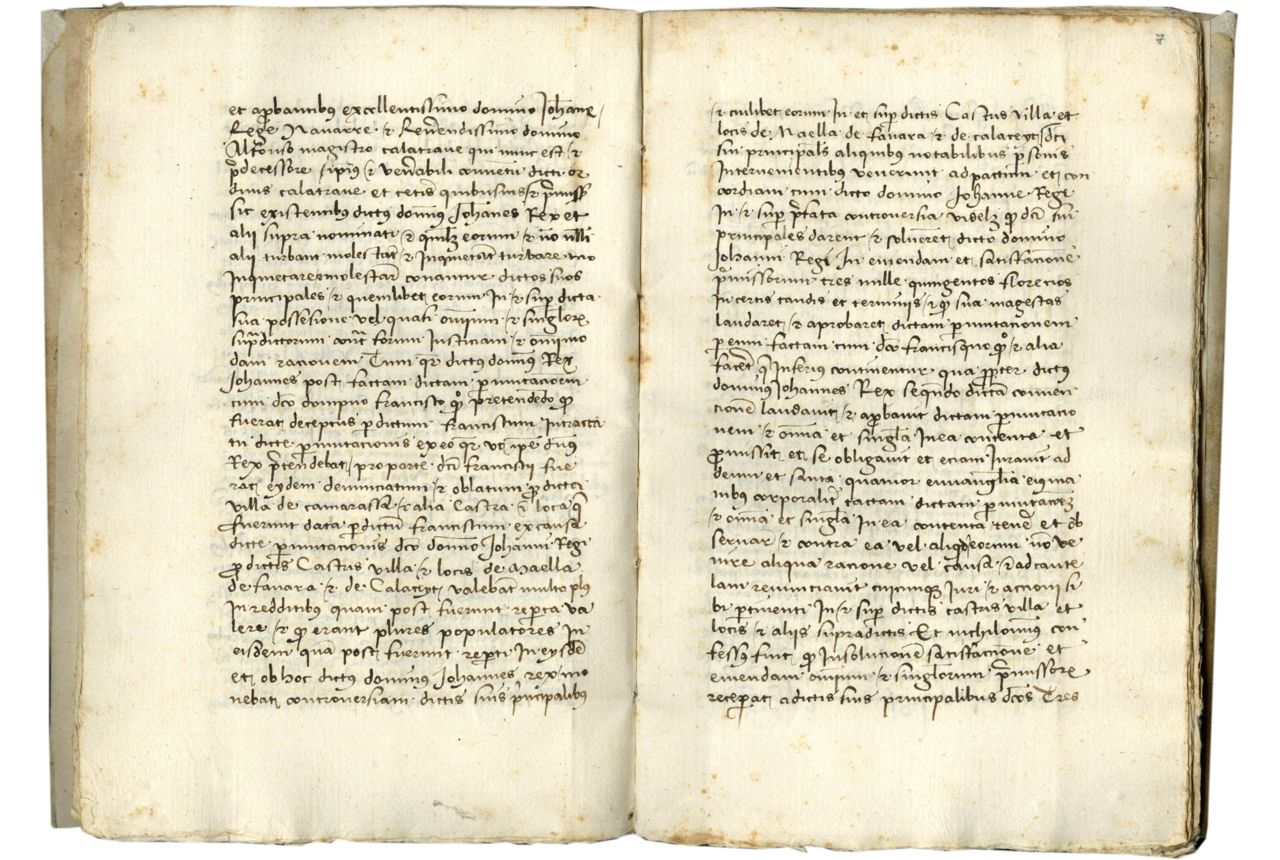 et aprobantibus excellentissimo domino Johane
Rege Navarre et Reverendissimo domino
Alfonso magistro calatrave qui nunc est et
predecessore ipsius et venerabili conventu dicti or
dinis calatrave et ceteris quibusvis et premissis
sic existentibus dictus dominus Johanes Rex et
alii supra nominati et quilibet eorum et non nulli
alii turbant molestant et Inquietant turbare
Inquietare molestare conantur dictos suos
principales et quemlibet eorum In et super dicta
sua possesione vel quasi omnium et singulorum
supradictorum contra forum Justiciam et omnimo
dam racionem Cum quia dictus dominus Rex
Johannes post factam dictam permutacionem
cum dicto dompno Francisco pretendendo quod
fuerat deceptus per dictum Franciscum In tracta
tu dicte permutacionis ex eo quia ut ipse dominus
Rex pretendebat pro parte dicti Francisci fue
rat eydem denunciatum et oblatum quod dicta
villa de camarassa et alia Castra et loca que
fuerunt data per dictum Franciscum ex causa
dicte permutacionis dicto domino Johanni Regi
pro dictis Castris villa et locis de Maella
de favara et de Calaceyt valebant multa plus
In redditibus quam post fuerunt reperta va
lere et quod erant plures populatores In
eisdem qua post fuerunt reperti In eysdem
et ob hoc dictus dominus Johannes rex mo
nebat controversiam dictis suis principalibus
7
et cuilibet eorum In et super dictis Castris villa et
locis de Maella de favara et de calaceyt dicti
sui principales aliquibus notabilibus personis
Intervenientibus venerunt ad pactum et con
cordiam cum dicto domino Johanne Regi
In et super prefata controversia videlicet quod dicti sui
principales darent et solverent dicto domino
Johanni Regi In emendam et satisfacione
premissorum tres mille quingentos florenos
In certis tandis et terminis et quod sua magestas
laudaret et aprobaret dictam permutacionem
per eum factam cum dicto Francisquo et alia
faceret que Inferius continentur qua propter dictus
dominus Johannes Rex sequendo dictam conven
cionem laudavit et aprobavit dictam permutacio
nem et omnia et singula In ea contenta et
promissit et se obligavit et eciam Juravit ad
deum et santa quatuor euvanglia eius ma
nibus corporaliter tactam dictam permutacionem
et omnia et singula In ea contenta tenere et ob
servare et contra ea vel aliquod eorum non ve
nire aliqua racione vel causa et ad caute
lam renunciavit cuicumque Juri et accioni si
bi pertinenti In et super dictis castris villa et
locis et aliis supradictis Et nichilominus con
fessus fuit quod In solucione satisfacione et
emendam omnium et singulorum premissorum
receperat a dictis suis principalibus dictos Tres